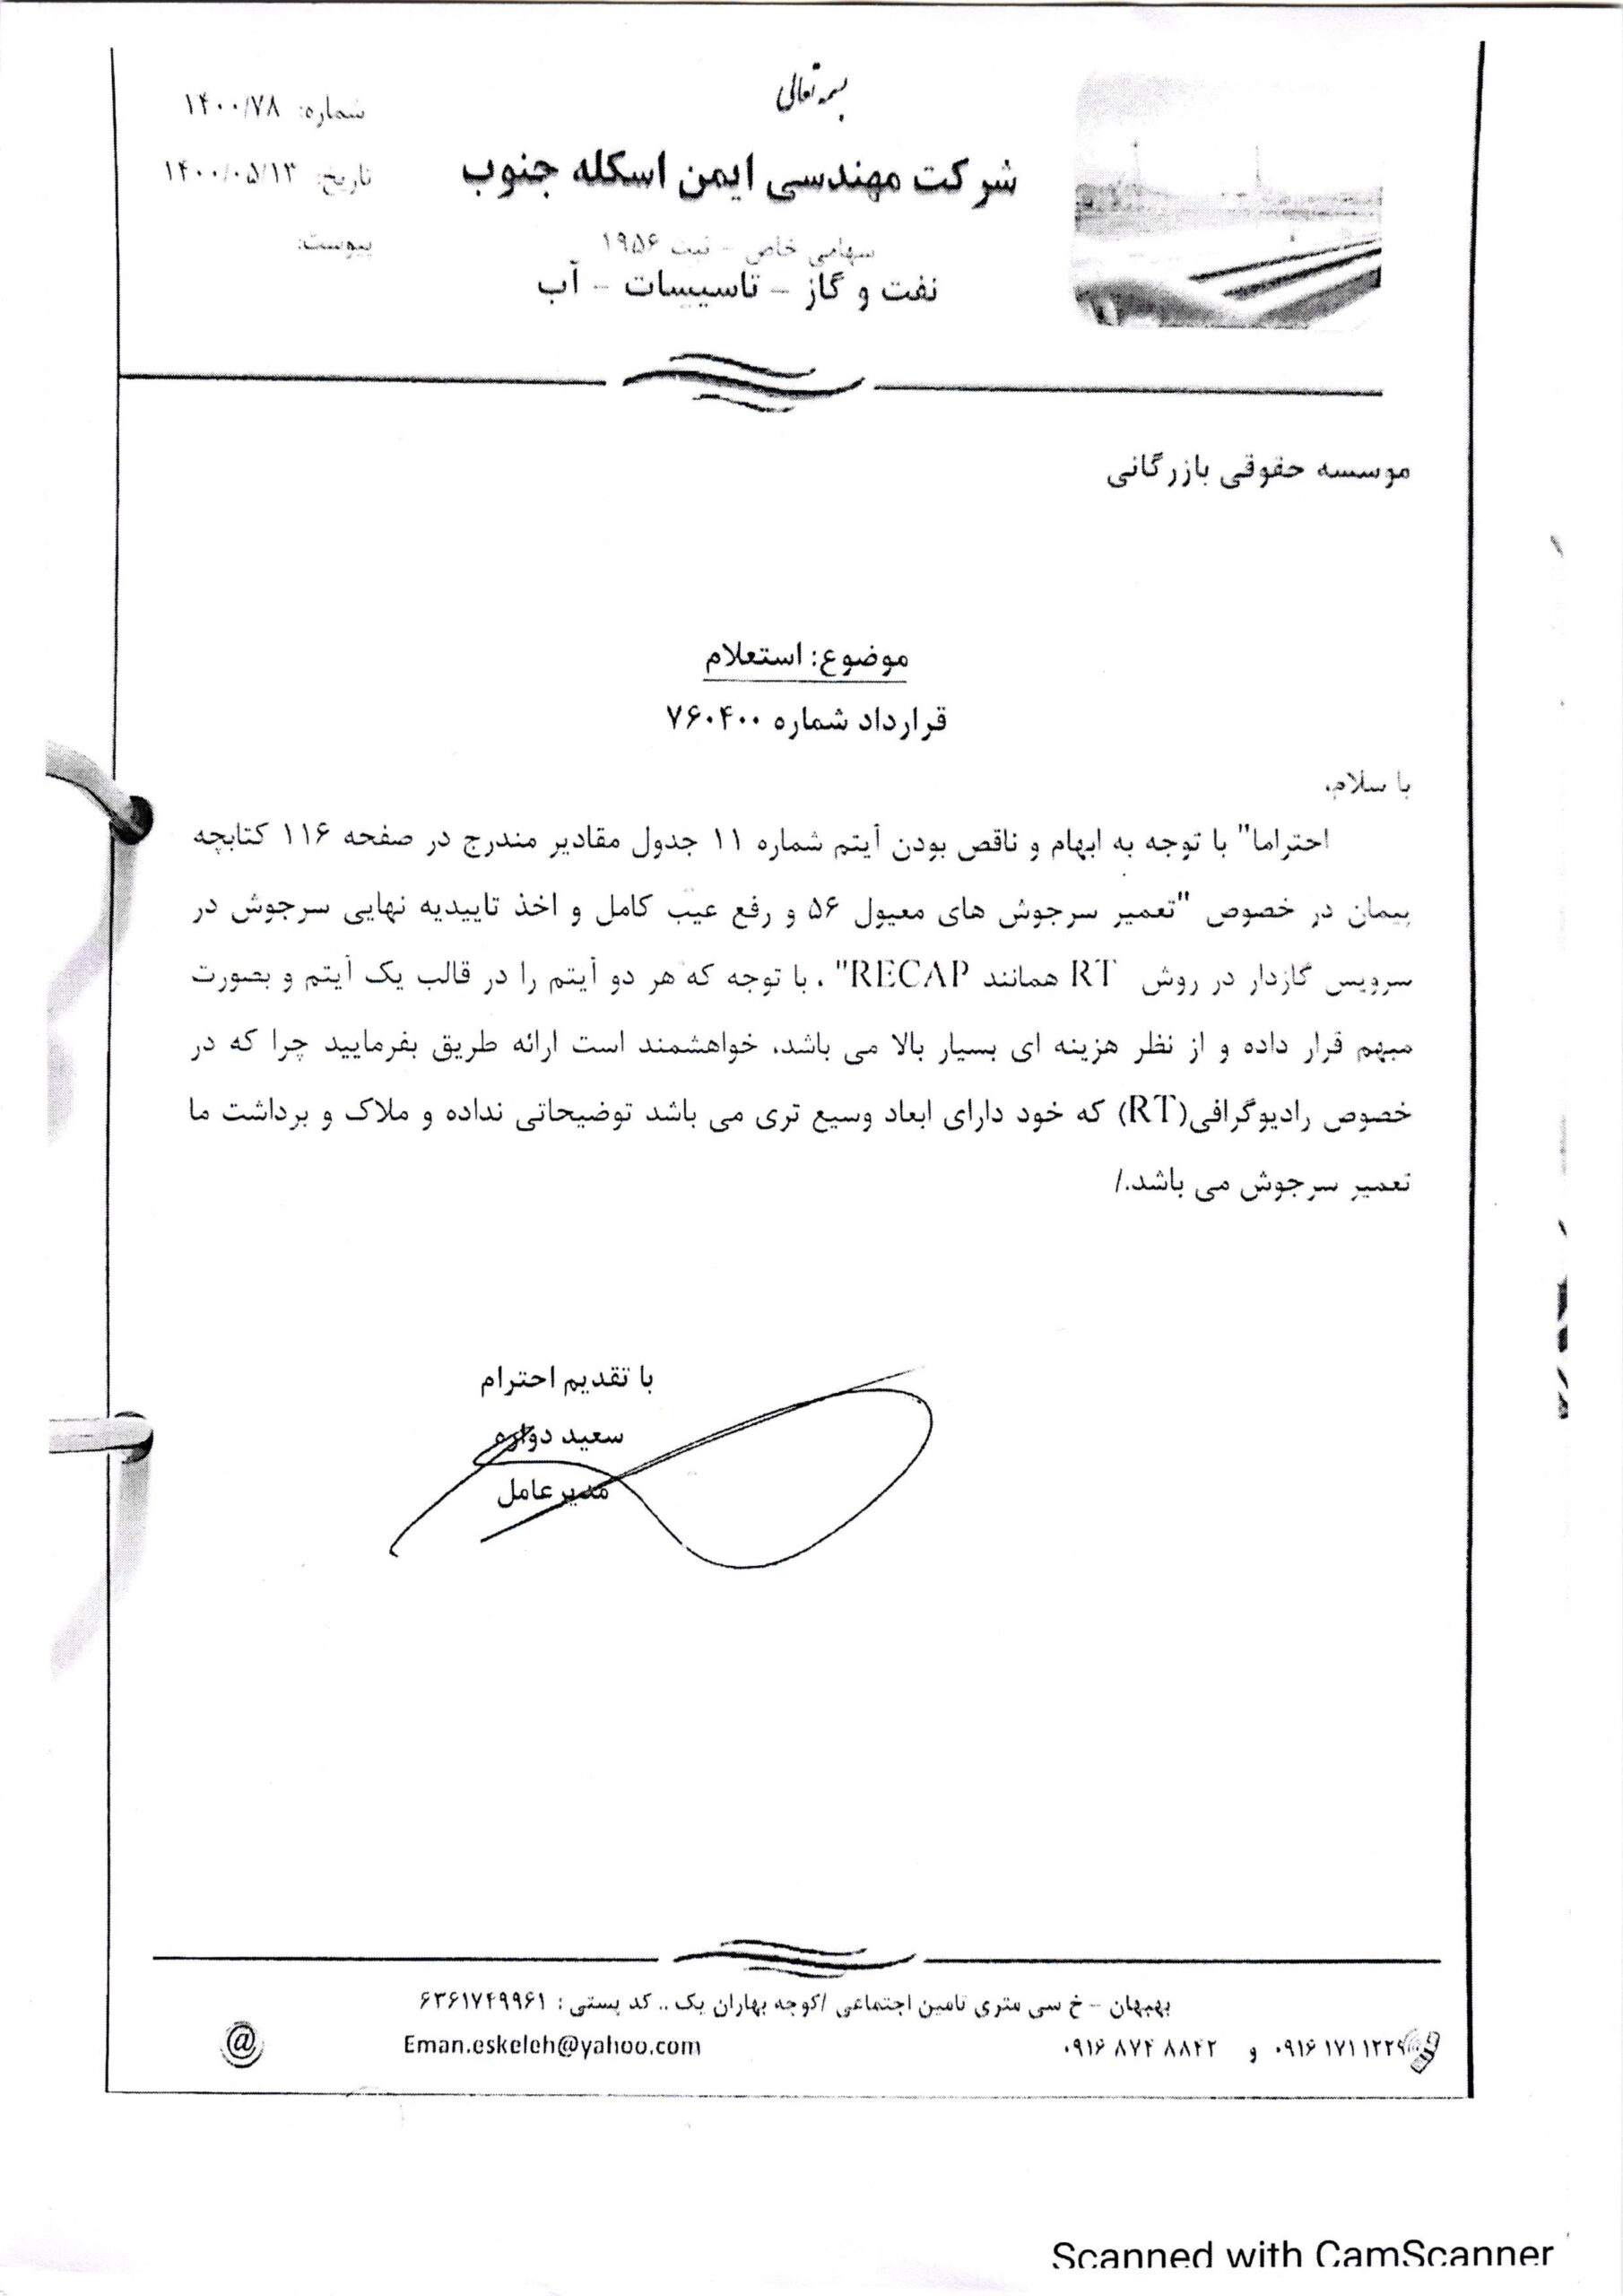 بسمه تعالی
شرکت مهندسی ایمن اسکله جنوب
سهامی خاص - ثبت ۱۹۵۶
نفت و گاز - تاسیسات - آب
شماره: ۱۴۰۰/۷۸
تاریخ: ۱۴۰۰/۰۵/۱۳
پیوست:
موسسه حقوقی بازرگانی
موضوع: استعلام
قرارداد شماره ۷۶۰۴۰۰
با سلام،
احتراما" با توجه به ابهام و ناقص بودن آیتم شماره ۱۱ جدول مقادیر مندرج در صفحه ۱۱۶ کتابچه
پیمان در خصوص "تعمیر سرجوش های معیول ۵۶ و رفع عیب کامل و اخذ تاییدیه نهایی سرجوش در
سرویس گازدار در روش RT همانند RECAP" ، با توجه که هر دو آیتم را در قالب یک آیتم و بصورت
مبهم قرار داده و از نظر هزینه ای بسیار بالا می باشد، خواهشمند است ارائه طریق بفرمایید چرا که در
خصوص رادیوگرافی(RT) که خود دارای ابعاد وسیع تری می باشد توضیحاتی نداده و ملاک و برداشت ما
تعمیر سرجوش می باشد./
با تقدیم احترام
سعید دواره
مدیرعامل
بهبهان - خ سی متری تامین اجتماعی /کوچه بهاران یک .. کد پستی : ۶۳۶۱۷۴۹۹۶۱
۰۹۱۶ ۱۷۱ ۱۲۲۹ و ۰۹۱۶ ۸۷۴ ۸۸۴۲ Eman.eskeleh@yahoo.com @
Scanned with CamScanner